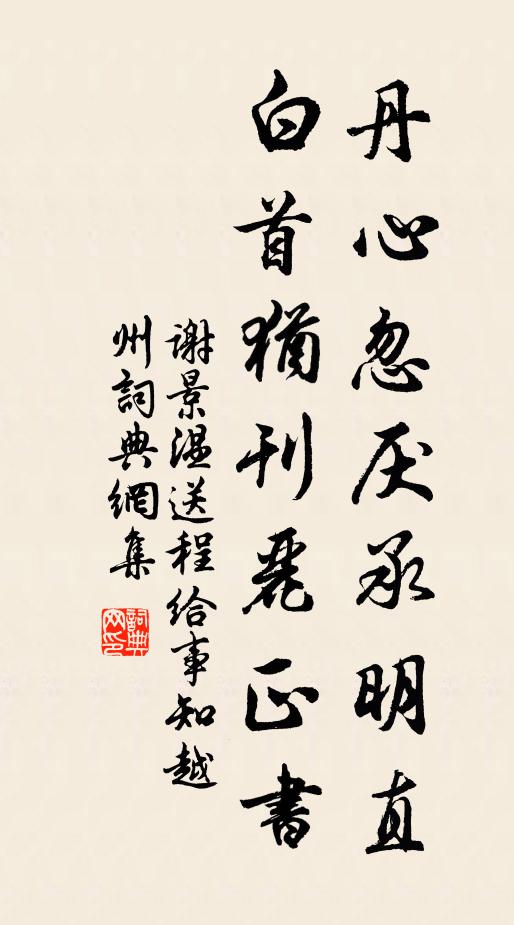 丹心忽厌承明直
白首猶刊麗正書
謝景温送程给事知越
州詞典網集
詞典
网印